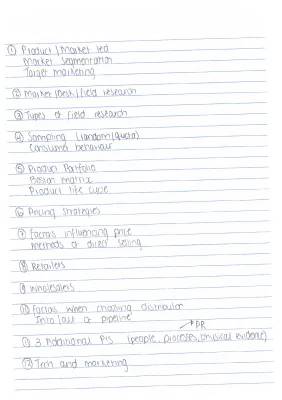 ① Product / Market led
Market Segmentation
Target marketing
② Market Desk / field research
③ Types of field research
④ Sampling (random/quota)
Consumer behaviour
⑤ Product Portfolio
Boston matrix
Product life cycle
⑥ Pricing strategies
⑦ Factors influencing price
methods of direct selling
⑧ Retailers
⑨ Wholesalers
⑩ Factors when choosing distributor
Into / out of pipeline
→ PR
⑪ 3 Additional P's (people, processes, physical evidence)
⑫ Tech and marketing